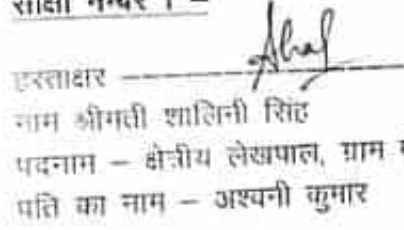 साक्षी नम्बर 1 –
हस्ताक्षर
नाम श्रीमती शालिनी सिंह
पदनाम – क्षेत्रीय लेखपाल, ग्राम
पति का नाम – अश्वनी कुमार